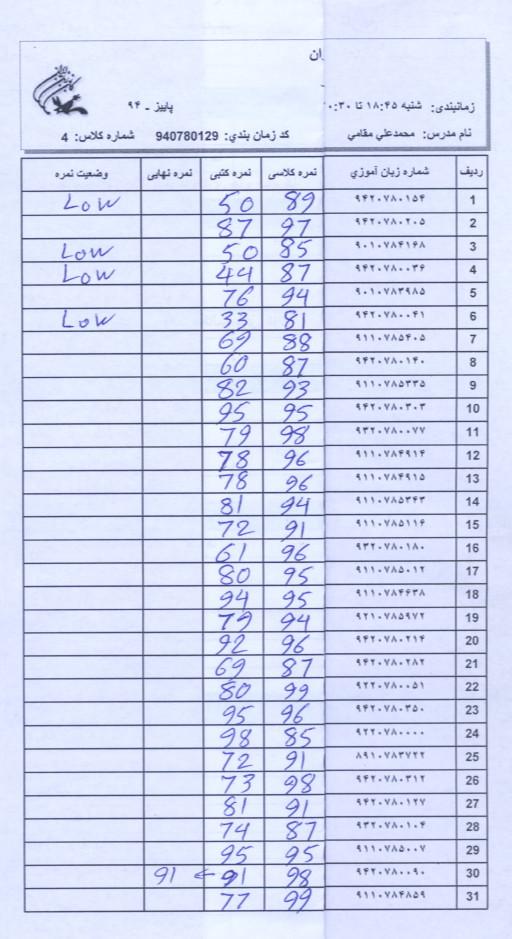 ان
زمانبندی: شنبه ۱۸:۴۵ تا ۰:۳۰ پاییز - ۹۴
نام مدرس: محمدعلي مقامي کد زمان بندي: 940780129 شماره کلاس: 4
ردیف شماره زبان آموزي نمره کلاسی نمره کتبی نمره نهایی وضعیت نمره
1 ۹۴۲۰۷۸۰۱۵۴ 89 50 Low
2 ۹۴۲۰۷۸۰۲۰۵ 97 87
3 ۹۰۱۰۷۸۴۱۶۸ 85 50 Low
4 ۹۴۲۰۷۸۰۰۳۶ 87 44 Low
5 ۹۰۱۰۷۸۳۹۸۵ 94 76
6 ۹۴۲۰۷۸۰۰۴۱ 81 33 Low
7 ۹۱۱۰۷۸۵۴۰۵ 88 69
8 ۹۴۲۰۷۸۰۱۴۰ 87 60
9 ۹۱۱۰۷۸۵۳۳۵ 93 82
10 ۹۴۲۰۷۸۰۳۰۳ 95 95
11 ۹۳۲۰۷۸۰۰۷۷ 98 79
12 ۹۱۱۰۷۸۴۹۱۴ 96 78
13 ۹۱۱۰۷۸۴۹۱۵ 96 78
14 ۹۱۱۰۷۸۵۳۴۳ 94 81
15 ۹۱۱۰۷۸۵۱۱۶ 91 72
16 ۹۳۲۰۷۸۰۱۸۰ 96 61
17 ۹۱۱۰۷۸۵۰۱۲ 95 80
18 ۹۱۱۰۷۸۴۶۳۸ 95 94
19 ۹۲۱۰۷۸۵۹۷۲ 94 79
20 ۹۴۲۰۷۸۰۲۱۴ 96 92
21 ۹۴۲۰۷۸۰۲۸۲ 87 69
22 ۹۲۲۰۷۸۰۰۵۱ 99 80
23 ۹۴۲۰۷۸۰۳۵۰ 96 95
24 ۹۲۲۰۷۸۰۰۰۰ 85 98
25 ۸۹۱۰۷۸۳۷۲۲ 91 72
26 ۹۴۲۰۷۸۰۳۱۲ 98 73
27 ۹۴۲۰۷۸۰۱۲۷ 91 81
28 ۹۳۲۰۷۸۰۱۰۴ 87 74
29 ۹۱۱۰۷۸۵۰۰۷ 95 95
30 ۹۴۲۰۷۸۰۰۹۰ 98 91 ← 91
31 ۹۱۱۰۷۸۴۸۵۹ 99 77